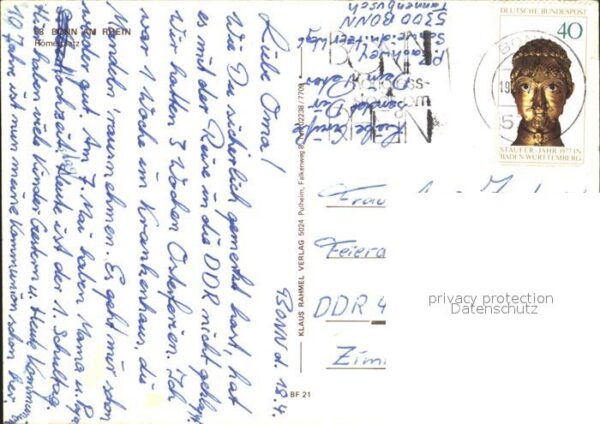 53 BONN AM RHEIN
Römerplatz
BONN d. 13.4.
Liebe Oma!
Wie Du sicherlich gemerkt hast, hat
es mit der Reise in die DDR nicht geklappt
Wir hatten 3 Wochen Osterferien. Ich
war 1 Woche im Krankenhaus, die
Mandeln raus nehmen. Es geht mir schon
wieder gut. Am 7. Mai haben Mama u. Papa
Hochzeit. Heute ist der 1. Schultag.
Wir haben viele Kinder Gestern u. Heute Kommun
10 Jahre ist nun meine Kommunion schon her
Liebe Grüße
sendet Dir
Dein Peter
5300 BONN
Tannenbusch
BF 21
KLAUS RAHMEL VERLAG 5024 Pulheim, Falkenweg 8 02238/7709
DEUTSCHE BUNDESPOST
40
STAUFER-JAHR 1977 IN
BADEN-WÜRTTEMBERG
BONN
19
53
Frau
Feiera
DDR 4
Zim
privacy protection
Datenschutz